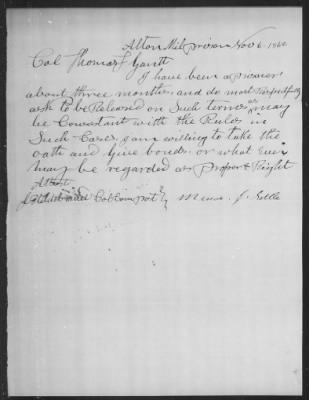 Alton Mil prison Nov 6, 1862
Col Thomas T Gantt
I have been a prisoner
about three months, and do most respectfully
ask to be Released on Such terms as may
be Consistant with the Rules in
Such Cases, I am willing to take the
oath and Give bonds, or what Ever
may be regarded as proper & Right
Attest